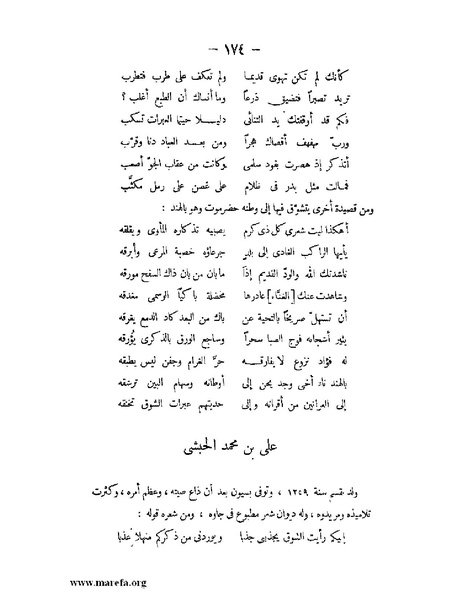 — ١٧٤ —
كأنك لم تكن تهوى قديما ولم تعكف على طرب فتطرب
تريد تصبراً فتضيق ذرعاً وما أنساك أن الطبع أغلب ؟
فكم قد أوقفتك يد التنائى دليلا حيثما العبرات تسكب
ورب مهفهف أقصاك هجراً ومن بعد العباد دنا وقرب
أتذكر إذ هصرت بفود سلمى وكانت من عقاب الجو أصعب
فمالت مثل بدر فى ظلام على غصن على رمل مكثب
ومن قصيدة أخرى يتشوق فيها إلى وطنه حضرموت وهو بالهند :
أهكذا ليت شعرى كل ذى كرم يصبيه تذكاره المأوى ويقلقه
يأيها الراكب الغادى إلى بلد جرعاؤه خصبة المرعى وأبرقه
ناشدتك الله والود القديم إذا ما بان من بان ذاك السفح مورقه
وشاهدت عينك [الغناء] غادرها مخضلة باكياً الوسمى مغدقه
أن تستهل صريخاً بالتحية عن باك من البعد كاد الدمع يغرقه
يثير أشجانه فوح الصبا سحراً وساجع الورق بالذكرى يؤرقه
له فؤاد نزوع لا يفارقه حر الغرام وجفن ليس يطبقه
بالهند ناد أخى وجد يحن إلى أوطانه وسهام البين ترشقه
إلى العرانين من أقرانه وإلى حديثهم عبرات الشوق تخنقه
على بن محمد الحبشى
ولد بقسم سنة ١٢٤٩ ، وتوفى بسيون بعد أن ذاع صيته ، وعظم أمره ، وكثرت
تلاميذه ومريدوه ، وله ديوان شعر مطبوع فى جاوه ، ومن شعره قوله :
إليكم رأيت الشوق يجذبنى جذبا ويوردنى من ذكركم منهلا عذبا
www.marefa.org